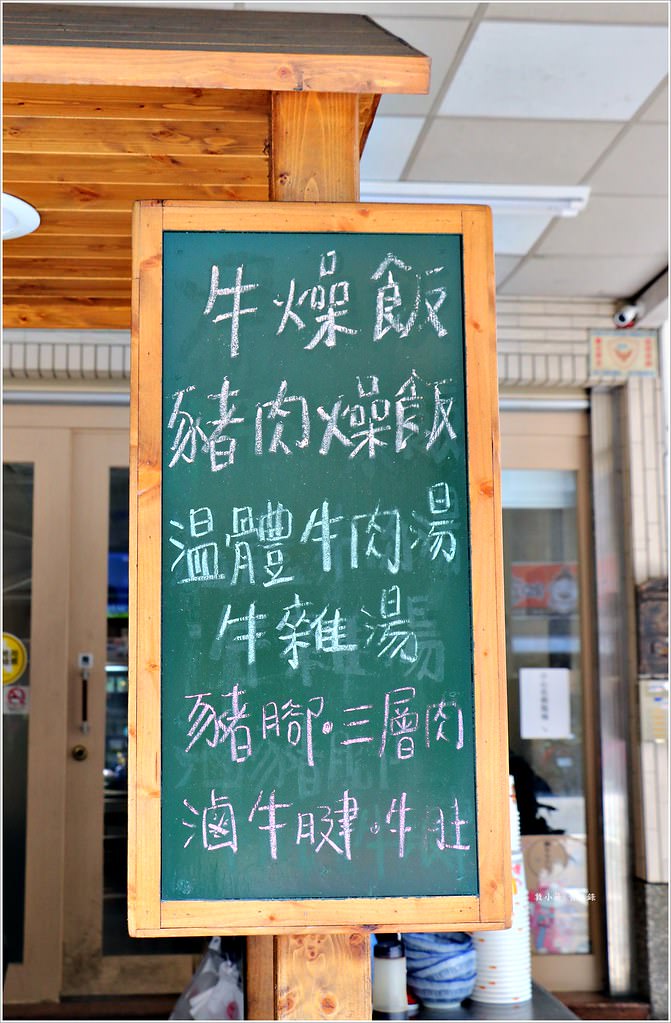 牛燥飯
豬肉燥飯
溫體牛肉湯
牛雜湯
豬腳·三層肉
滷牛腱·牛肚